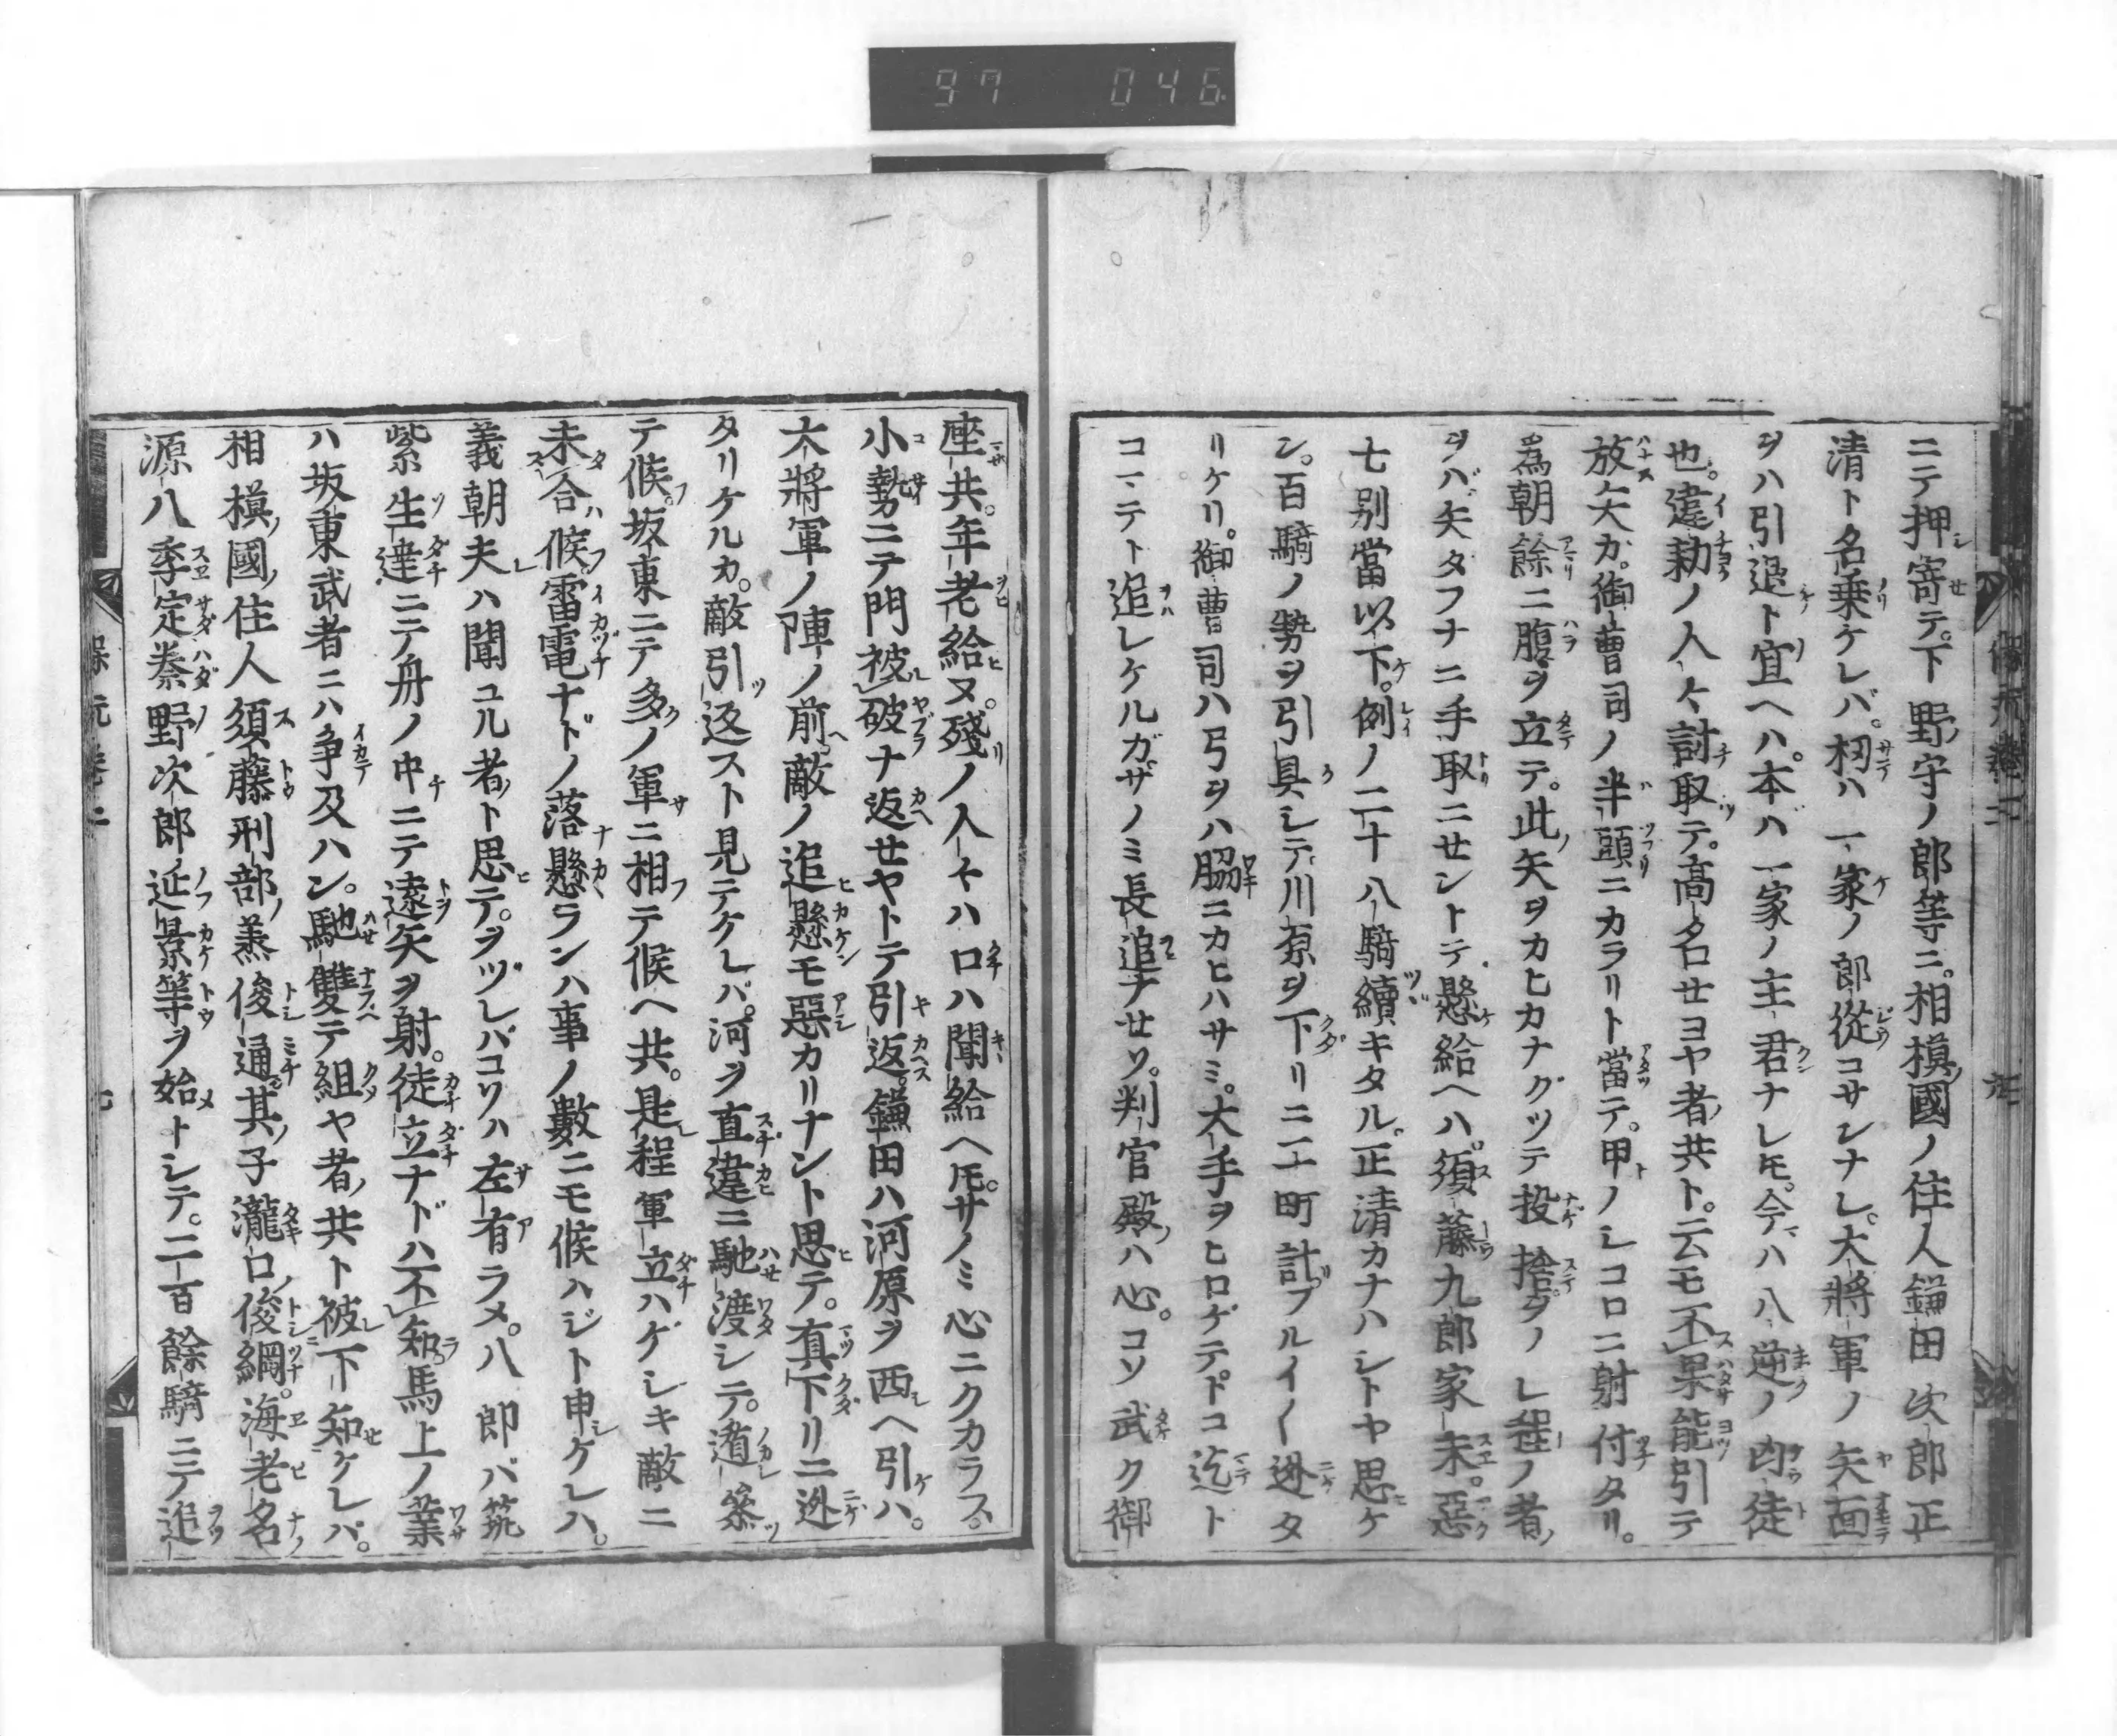 97 046
ニテ押寄テ。下野守ノ郎等ニ。相模國ノ住人鎌田次郎正
清ト名乗ケレバ。扨ハ一家ノ郎從コサンナレ。大將軍ノ矢面
ヲハ引退ト宣ヘハ。本ハ一家ノ主君ナレ𪜈。今ハ八逆ノ凶徒
也。違勅ノ人々討取テ。高名セヨヤ者共ト。云モ不果能引テ
放矢カ。御曹司ノ半頭ニカラリト當テ。甲ノシコロニ射付タリ。
爲朝餘ニ腹ヲ立テ。此矢ヲカヒカナグツテ投捨。ヲノレ程ノ者
ヲハ矢タフナニ手取ニセントテ懸給ヘハ。須藤九郎家末。惡
七別當以下。例ノ二十八騎續キタル。正清カナハシトヤ思ケ
ン。百騎ノ勢ヲ引具シテ川原ヲ下リニ二町計フルイ〱迯タ
リケリ。御曹司ハ弓ヲハ脇ニカヒハサミ。大手ヲヒロゲテドコ迄ト
コマテト追レケルガザノミ長追ナせソ。判官殿ハ心。コソ武ク御
座共。年老給ヌ。殘ノ人々ハ口ハ聞給ヘ𪜈。サノミ心ニクカラス。
小勢ニテ門被破ナ返せヤトテ引返。鎌田ハ河原ヲ西ヘ引ハ。
大將軍ノ陣ノ前敵ノ追懸モ惡カリナント思テ。真下リニ迯
タリケルカ。敵引返スト見テケレバ。河ヲ直違ニ馳渡シテ。遁參
テ候。坂東ニテ多ノ軍ニ相テ候ヘ共。是程軍立ハゲシキ敵ニ
未合候。雷電ナドノ落懸ランハ事ノ數ニモ候ハジト申ケレハ。
義朝夫ハ聞ユル者ト思テ。ヲヅレバコソハ左有ラメ。八郎バ筑
紫生達ニテ舟ノ中ニテ遠矢ヲ射。徒立ナドハ不知馬上ノ業
ハ坂東武者ニハ争及ハン。馳雙テ組ヤ者共ト被下知ケレバ。
相模國住人須藤刑部丞俊通其子瀧口俊綱。海老名
源八季定秦野次郎延景等ヲ始トシテ。二百餘騎ニテ追
保元巻二